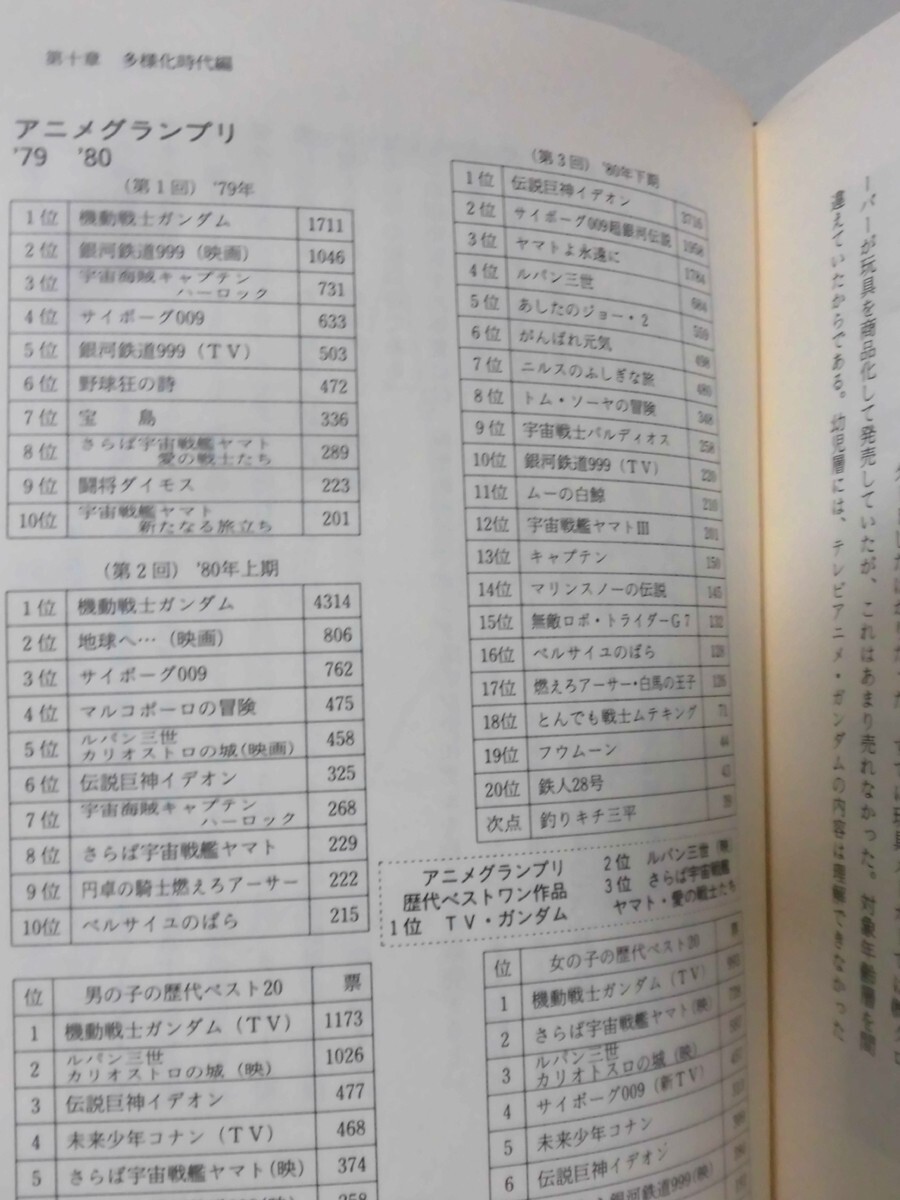 第十章　多様化時代編
アニメグランプリ
'79　'80
(第1回) '79年
1位 機動戦士ガンダム 1711
2位 銀河鉄道999（映画） 1046
3位 宇宙海賊キャプテン
ハーロック 731
4位 サイボーグ009 633
5位 銀河鉄道999（TV） 503
6位 野球狂の詩 472
7位 宝　島 336
8位 さらば宇宙戦艦ヤマト
愛の戦士たち 289
9位 闘将ダイモス 223
10位 宇宙戦艦ヤマト
新たなる旅立ち 201
(第2回) '80年上期
1位 機動戦士ガンダム 4314
2位 地球へ…（映画） 806
3位 サイボーグ009 762
4位 マルコポーロの冒険 475
5位 ルパン三世
カリオストロの城(映画) 458
6位 伝説巨神イデオン 325
7位 宇宙海賊キャプテン
ハーロック 268
8位 さらば宇宙戦艦ヤマト 229
9位 円卓の騎士燃えろアーサー 222
10位 ベルサイユのばら 215
(第3回) '80年下期
1位 伝説巨神イデオン 3716
2位 サイボーグ009超銀河伝説 1958
3位 ヤマトよ永遠に 1784
4位 ルパン三世 684
5位 あしたのジョー・2
6位 がんばれ元気 498
7位 ニルスのふしぎな旅 480
8位 トム・ソーヤの冒険 348
9位 宇宙戦士バルディオス 258
10位 銀河鉄道999（TV） 220
11位 ムーの白鯨 210
12位 宇宙戦艦ヤマトIII 201
13位 キャプテン 150
14位 マリンスノーの伝説 145
15位 無敵ロボ・トライダーG7 132
16位 ベルサイユのばら 128
17位 燃えろアーサー・白馬の王子 126
18位 とんでも戦士ムテキング 71
19位 フウムーン 44
20位 鉄人28号
次点 釣りキチ三平
アニメグランプリ
歴代ベストワン作品
1位　TV・ガンダム
2位　ルパン三世（映）
3位　さらば宇宙戦艦
ヤマト・愛の戦士たち
位 男の子の歴代ベスト20 票
1 機動戦士ガンダム（TV） 1173
2 ルパン三世
カリオストロの城（映） 1026
3 伝説巨神イデオン 477
4 未来少年コナン（TV） 468
5 さらば宇宙戦艦ヤマト(映) 374
位 女の子の歴代ベスト20 票
1 機動戦士ガンダム（TV）
2 さらば宇宙戦艦ヤマト(映)
3 ルパン三世
カリオトスロの城（映）
4 サイボーグ009（新TV）
5 未来少年コナン
6 伝説巨神イデオン
銀河鉄道999(映)
ーパーが玩具を商品化して発売していたが、これはあまり売れなかった。対象年齢層を間
違えていたからである。幼児層には、テレビアニメ・ガンダムの内容は理解できなかった